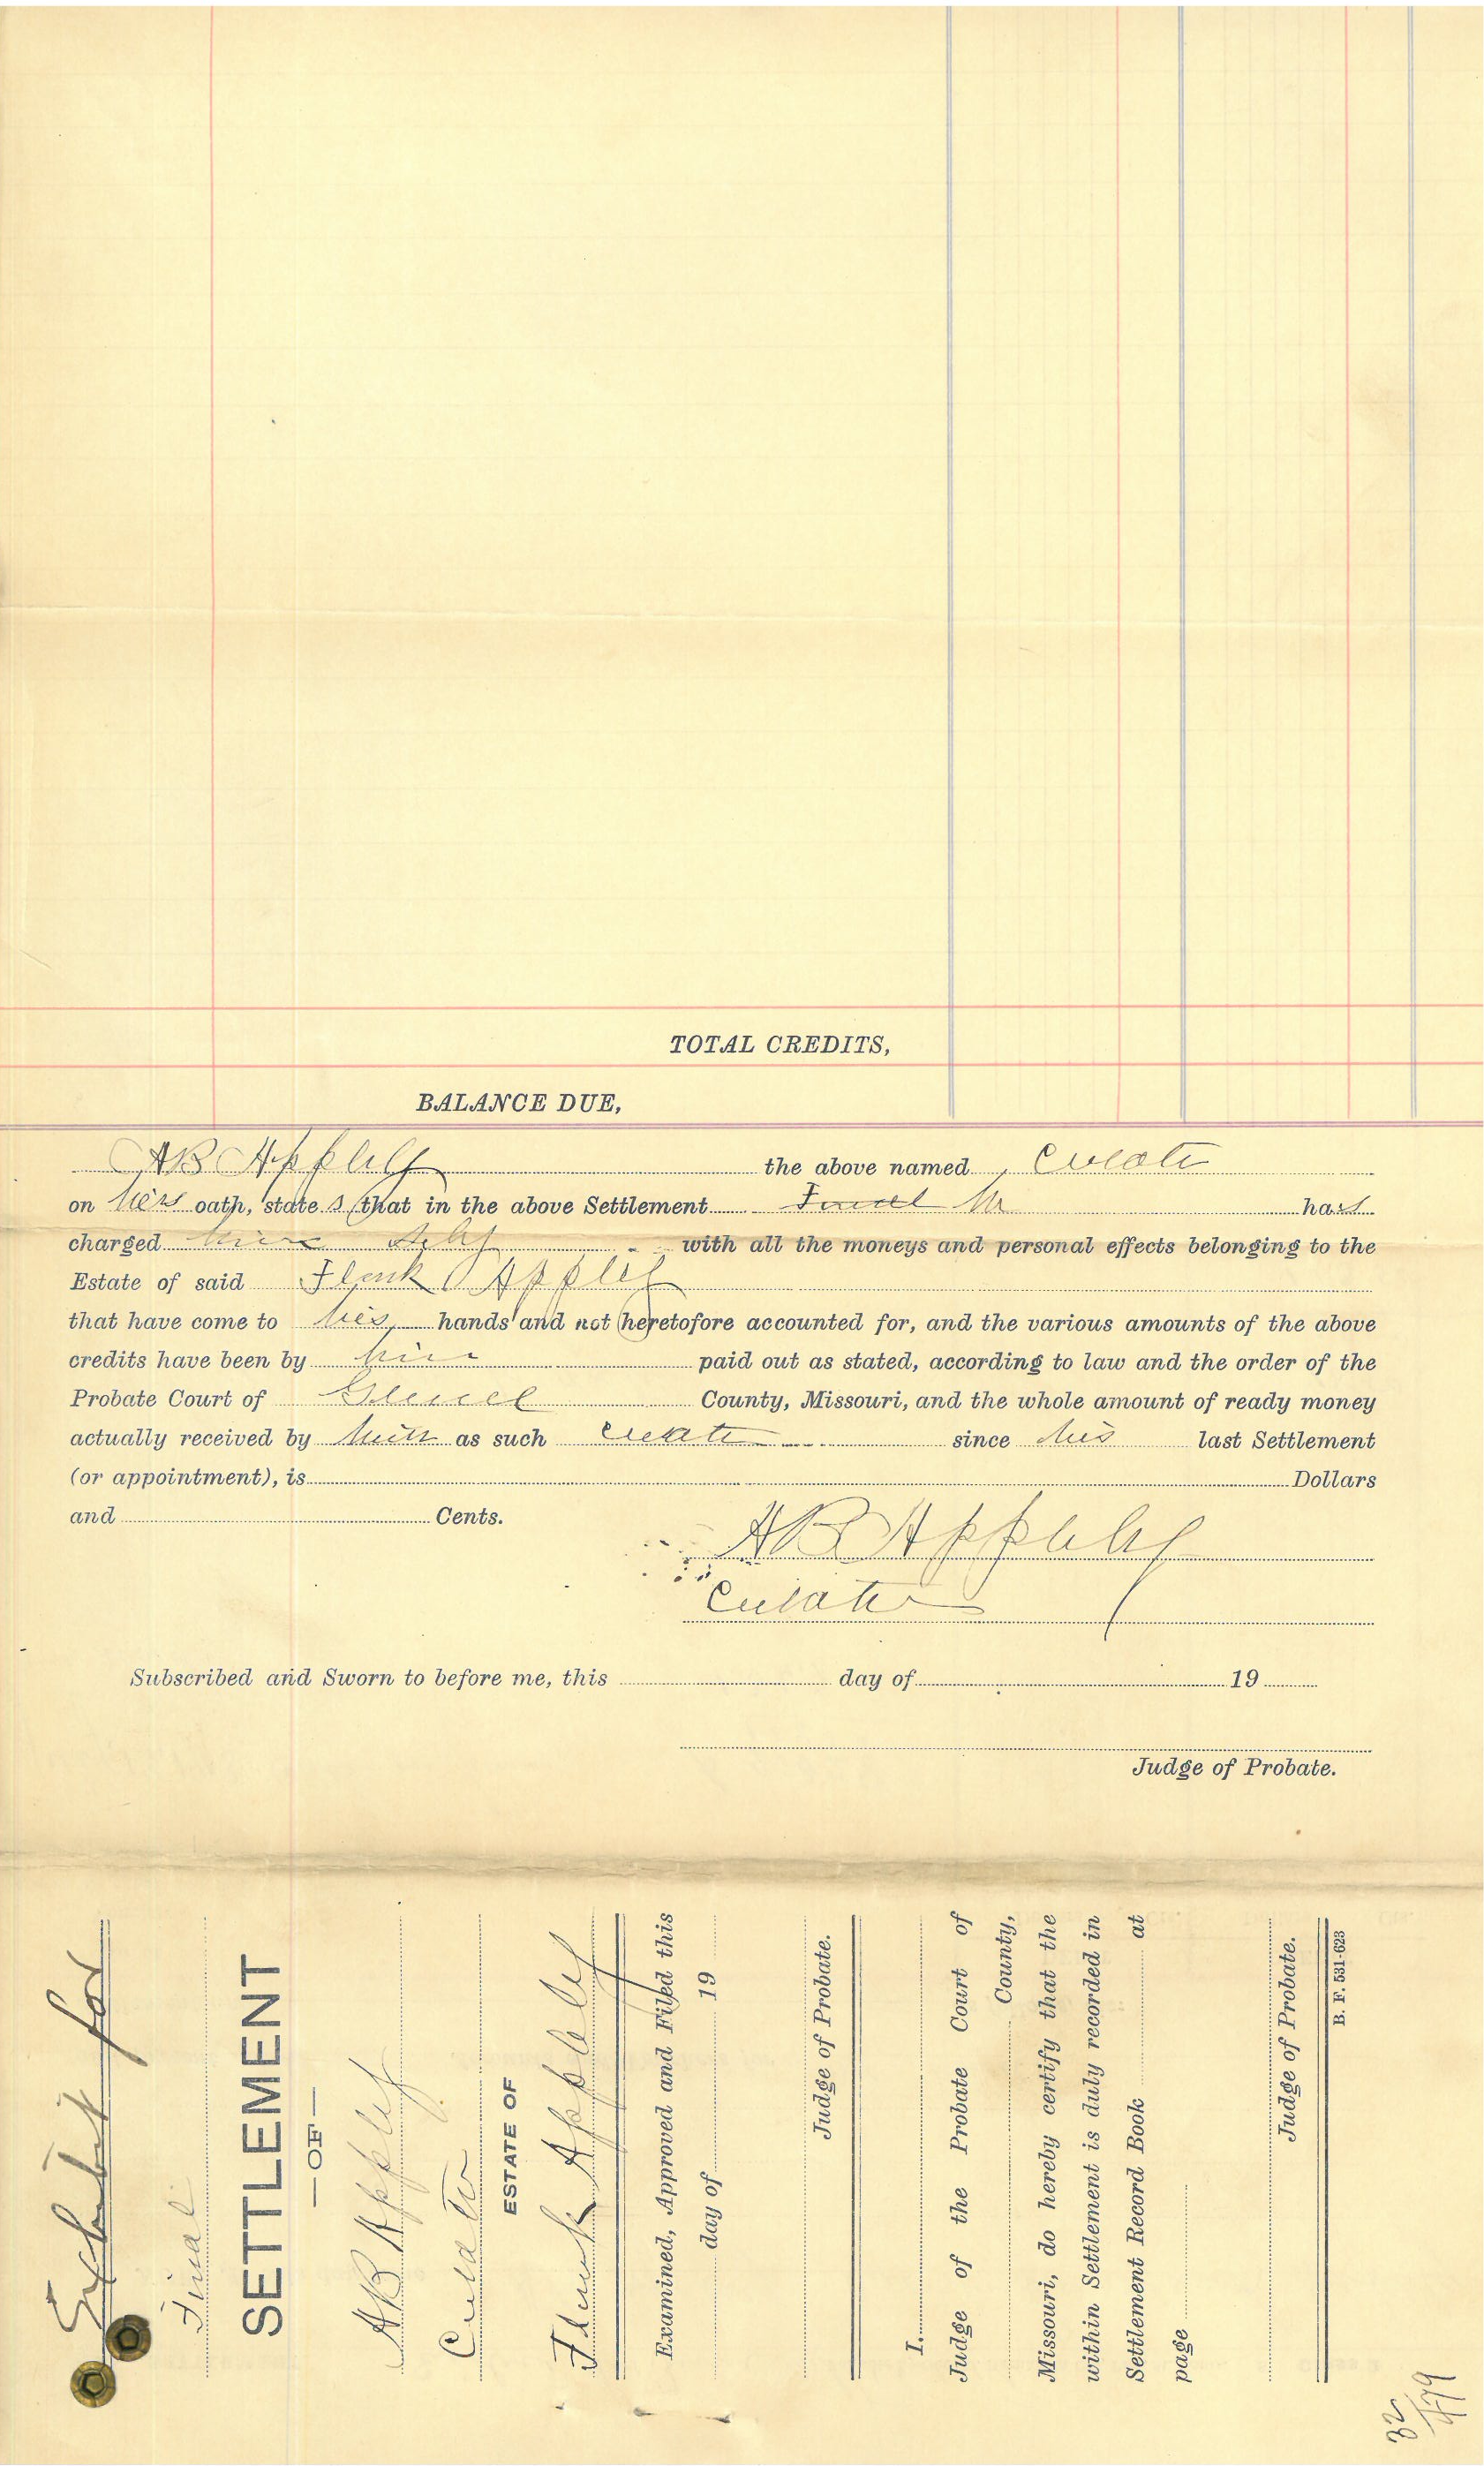 TOTAL CREDITS,
BALANCE DUE,
AB Appleby the above named Curator
on his oath, state s that in the above Settlement he has
charged him self with all the moneys and personal effects belonging to the
Estate of said Frank Appleby
that have come to his hands and not heretofore accounted for, and the various amounts of the above
credits have been by him paid out as stated, according to law and the order of the
Probate Court of County, Missouri, and the whole amount of ready money
actually received by him as such Curator since his last Settlement
(or appointment), is Dollars
and Cents.
AB Appleby
Curator
Subscribed and Sworn to before me, this day of 19
Judge of Probate.
Exhibit for
Final
SETTLEMENT
—OF—
AB Appleby
Curator
ESTATE OF
Frank Appleby
Examined, Approved and Filed this
day of 19
Judge of Probate.
I.
Judge of the Probate Court of
County,
Missouri, do hereby certify that the
within Settlement is duly recorded in
Settlement Record Book at
page
Judge of Probate.
B. F. 531-623
32
479